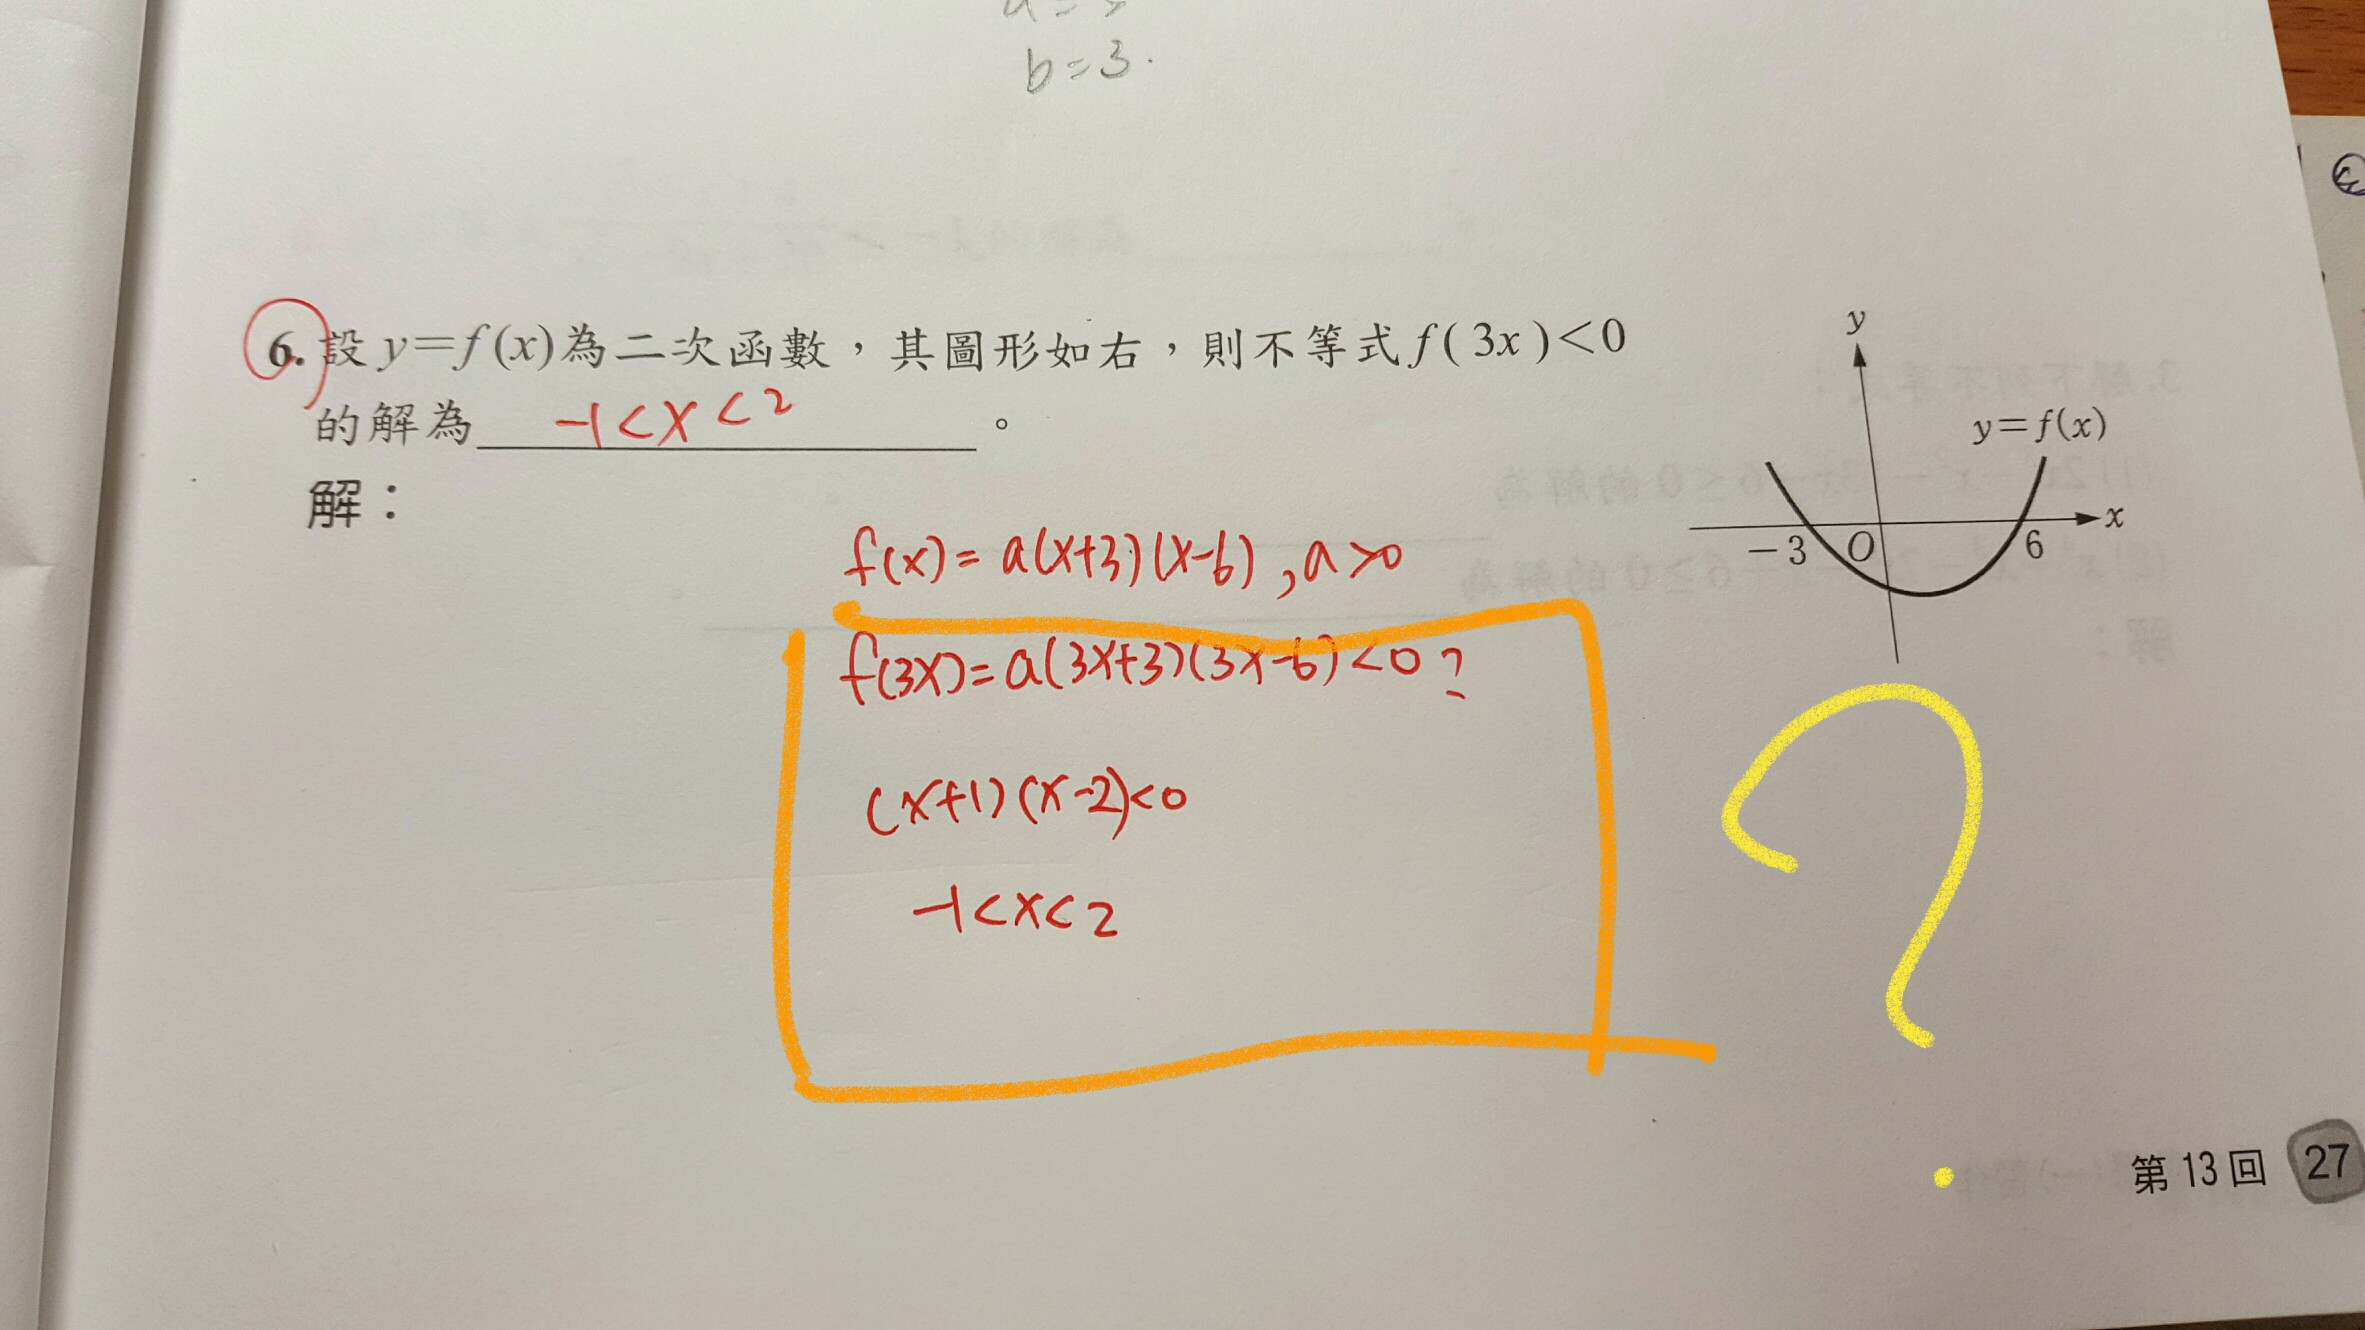 b=3.
6. 設y=f(x)為二次函數，其圖形如右，則不等式f(3x)<0
的解為 -1<x<2 。
解：
y
y=f(x)
x
-3
O
6
f(x)=a(x+3)(x-6), a>0
f(3x)=a(3x+3)(3x-6)<0?
(x+1)(x-2)<0
-1<x<2
?
第13回 27